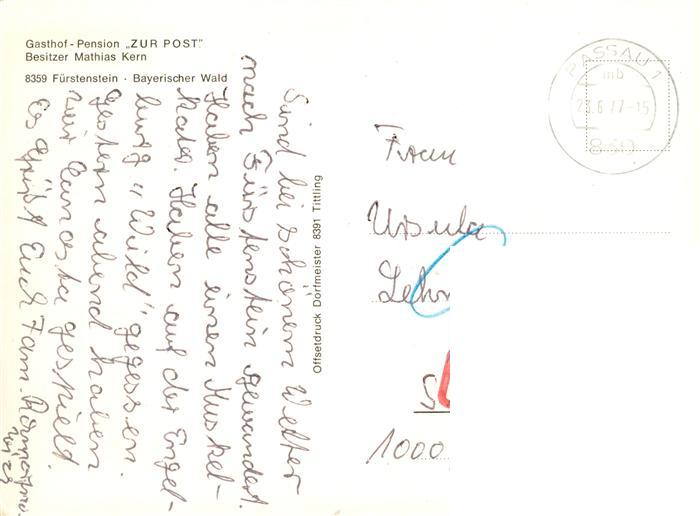 Gasthof - Pension „ZUR POST"
Besitzer Mathias Kern
8359 Fürstenstein · Bayerischer Wald
Sind bei schönem Wetter
nach Fürstenstein gewandert.
Haben alle einen Muskel-
kater. Haben auf der Engel-
burg "Wild" gegessen.
Gestern abend haben
wir Canasta gespielt.
Es grüßt Euch Fam.
Offsetdruck Dorfmeister 8391 Tittling
PASSAU 1
mb
23.6.77-15
Frau
Ursula
1000